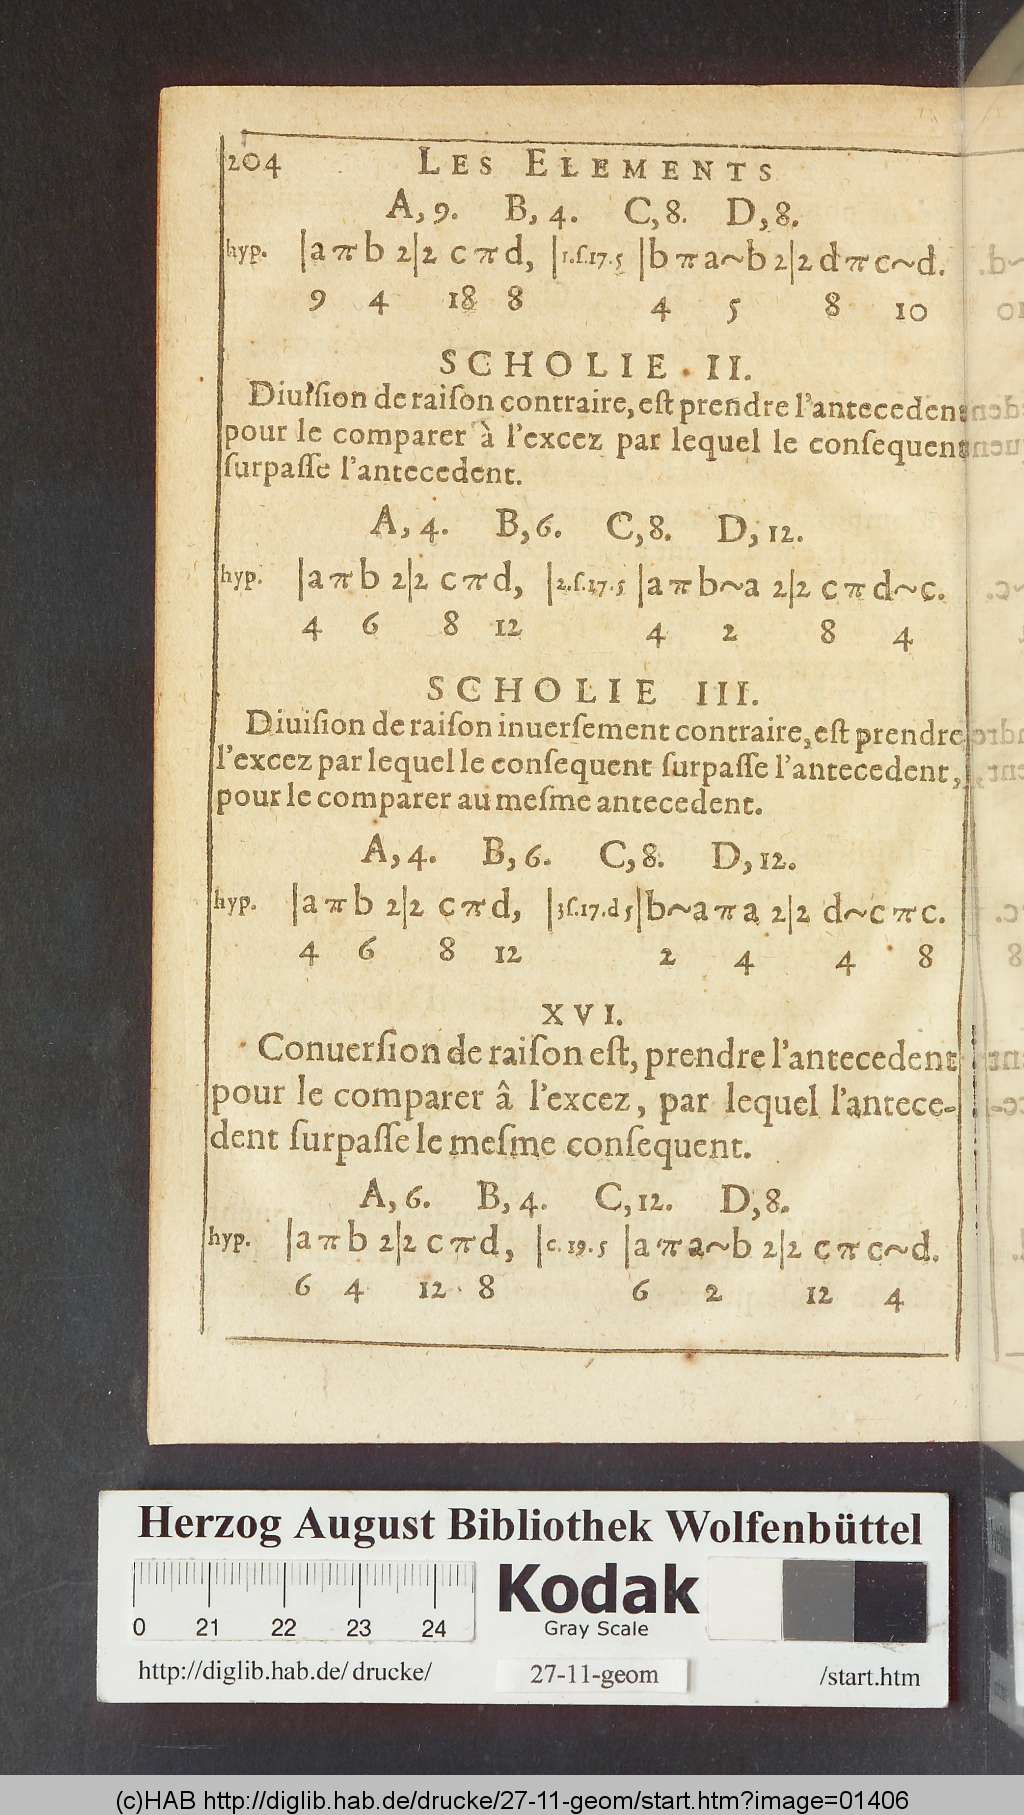 204 LES ELEMENTS
A, 9. B, 4. C, 8. D, 8.
hyp. |a π b 2|2 c π d, |1.ſ.17.5 |b π a~b 2|2 d π c~d.
9 4 18 8 4 5 8 10
SCHOLIE II.
Diuiſion de raiſon contraire, eſt prendre l'antecedent
pour le comparer à l'excez par lequel le conſequent
ſurpaſſe l'antecedent.
A, 4. B, 6. C, 8. D, 12.
hyp. |a π b 2|2 c π d, |2.ſ.17.5 |a π b~a 2|2 c π d~c.
4 6 8 12 4 2 8 4
SCHOLIE III.
Diuiſion de raiſon inuerſement contraire, eſt prendre
l'excez par lequel le conſequent ſurpaſſe l'antecedent,
pour le comparer au meſme antecedent.
A, 4. B, 6. C, 8. D, 12.
hyp. |a π b 2|2 c π d, |3ſ.17.d 5|b~a π a 2|2 d~c π c.
4 6 8 12 2 4 4 8
XVI.
Conuerſion de raiſon eſt, prendre l'antecedent
pour le comparer â l'excez, par lequel l'antece-
dent ſurpaſſe le meſme conſequent.
A, 6. B, 4. C, 12. D, 8.
hyp. |a π b 2|2 c π d, |c. 19. 5 |a π a~b 2|2 c π c~d.
6 4 12 8 6 2 12 4
Herzog August Bibliothek Wolfenbüttel
0 21 22 23 24
Kodak
Gray Scale
http://diglib.hab.de/drucke/ 27-11-geom /start.htm
(c)HAB http://diglib.hab.de/drucke/27-11-geom/start.htm?image=01406